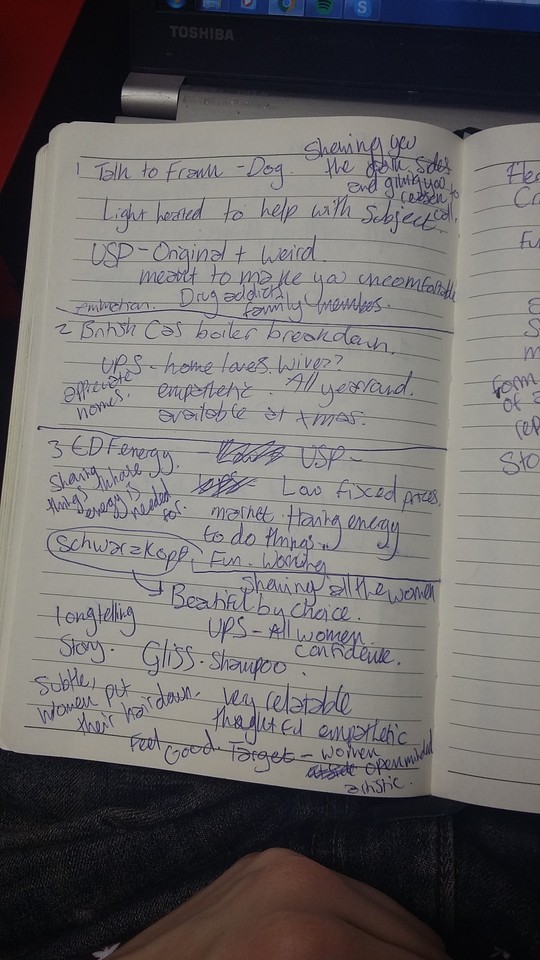 TOSHIBA
Showing you
1 Talk to Frank - Dog. the dark sides
and giving you
reason to
call.
Light hearted to help with subject
USP - Original + weird.
meant to make you uncomfortable
emmotion. Drug addicts
family members.
2 British Gas boiler breakdown.
UPS - home loves. Wives??
empathetic. All year round.
homes. available at xmas.
3 EDF energy. USP -
Sharing
things
energy is
needed
for.
Low fixced prices.
market. Having energy
to do things.
Schwarzkopf, Fun. Working
Showing all the women
Beatiful by choice.
Longtelling
Story.
UPS - All women
confidence.
Gliss. Shampoo.
Subtle,
women put
their hair down.
Very relatable
empathetic
Feel Good. Target - women
openminded
artistic.
Fu
m
form
of a
rep
Sto